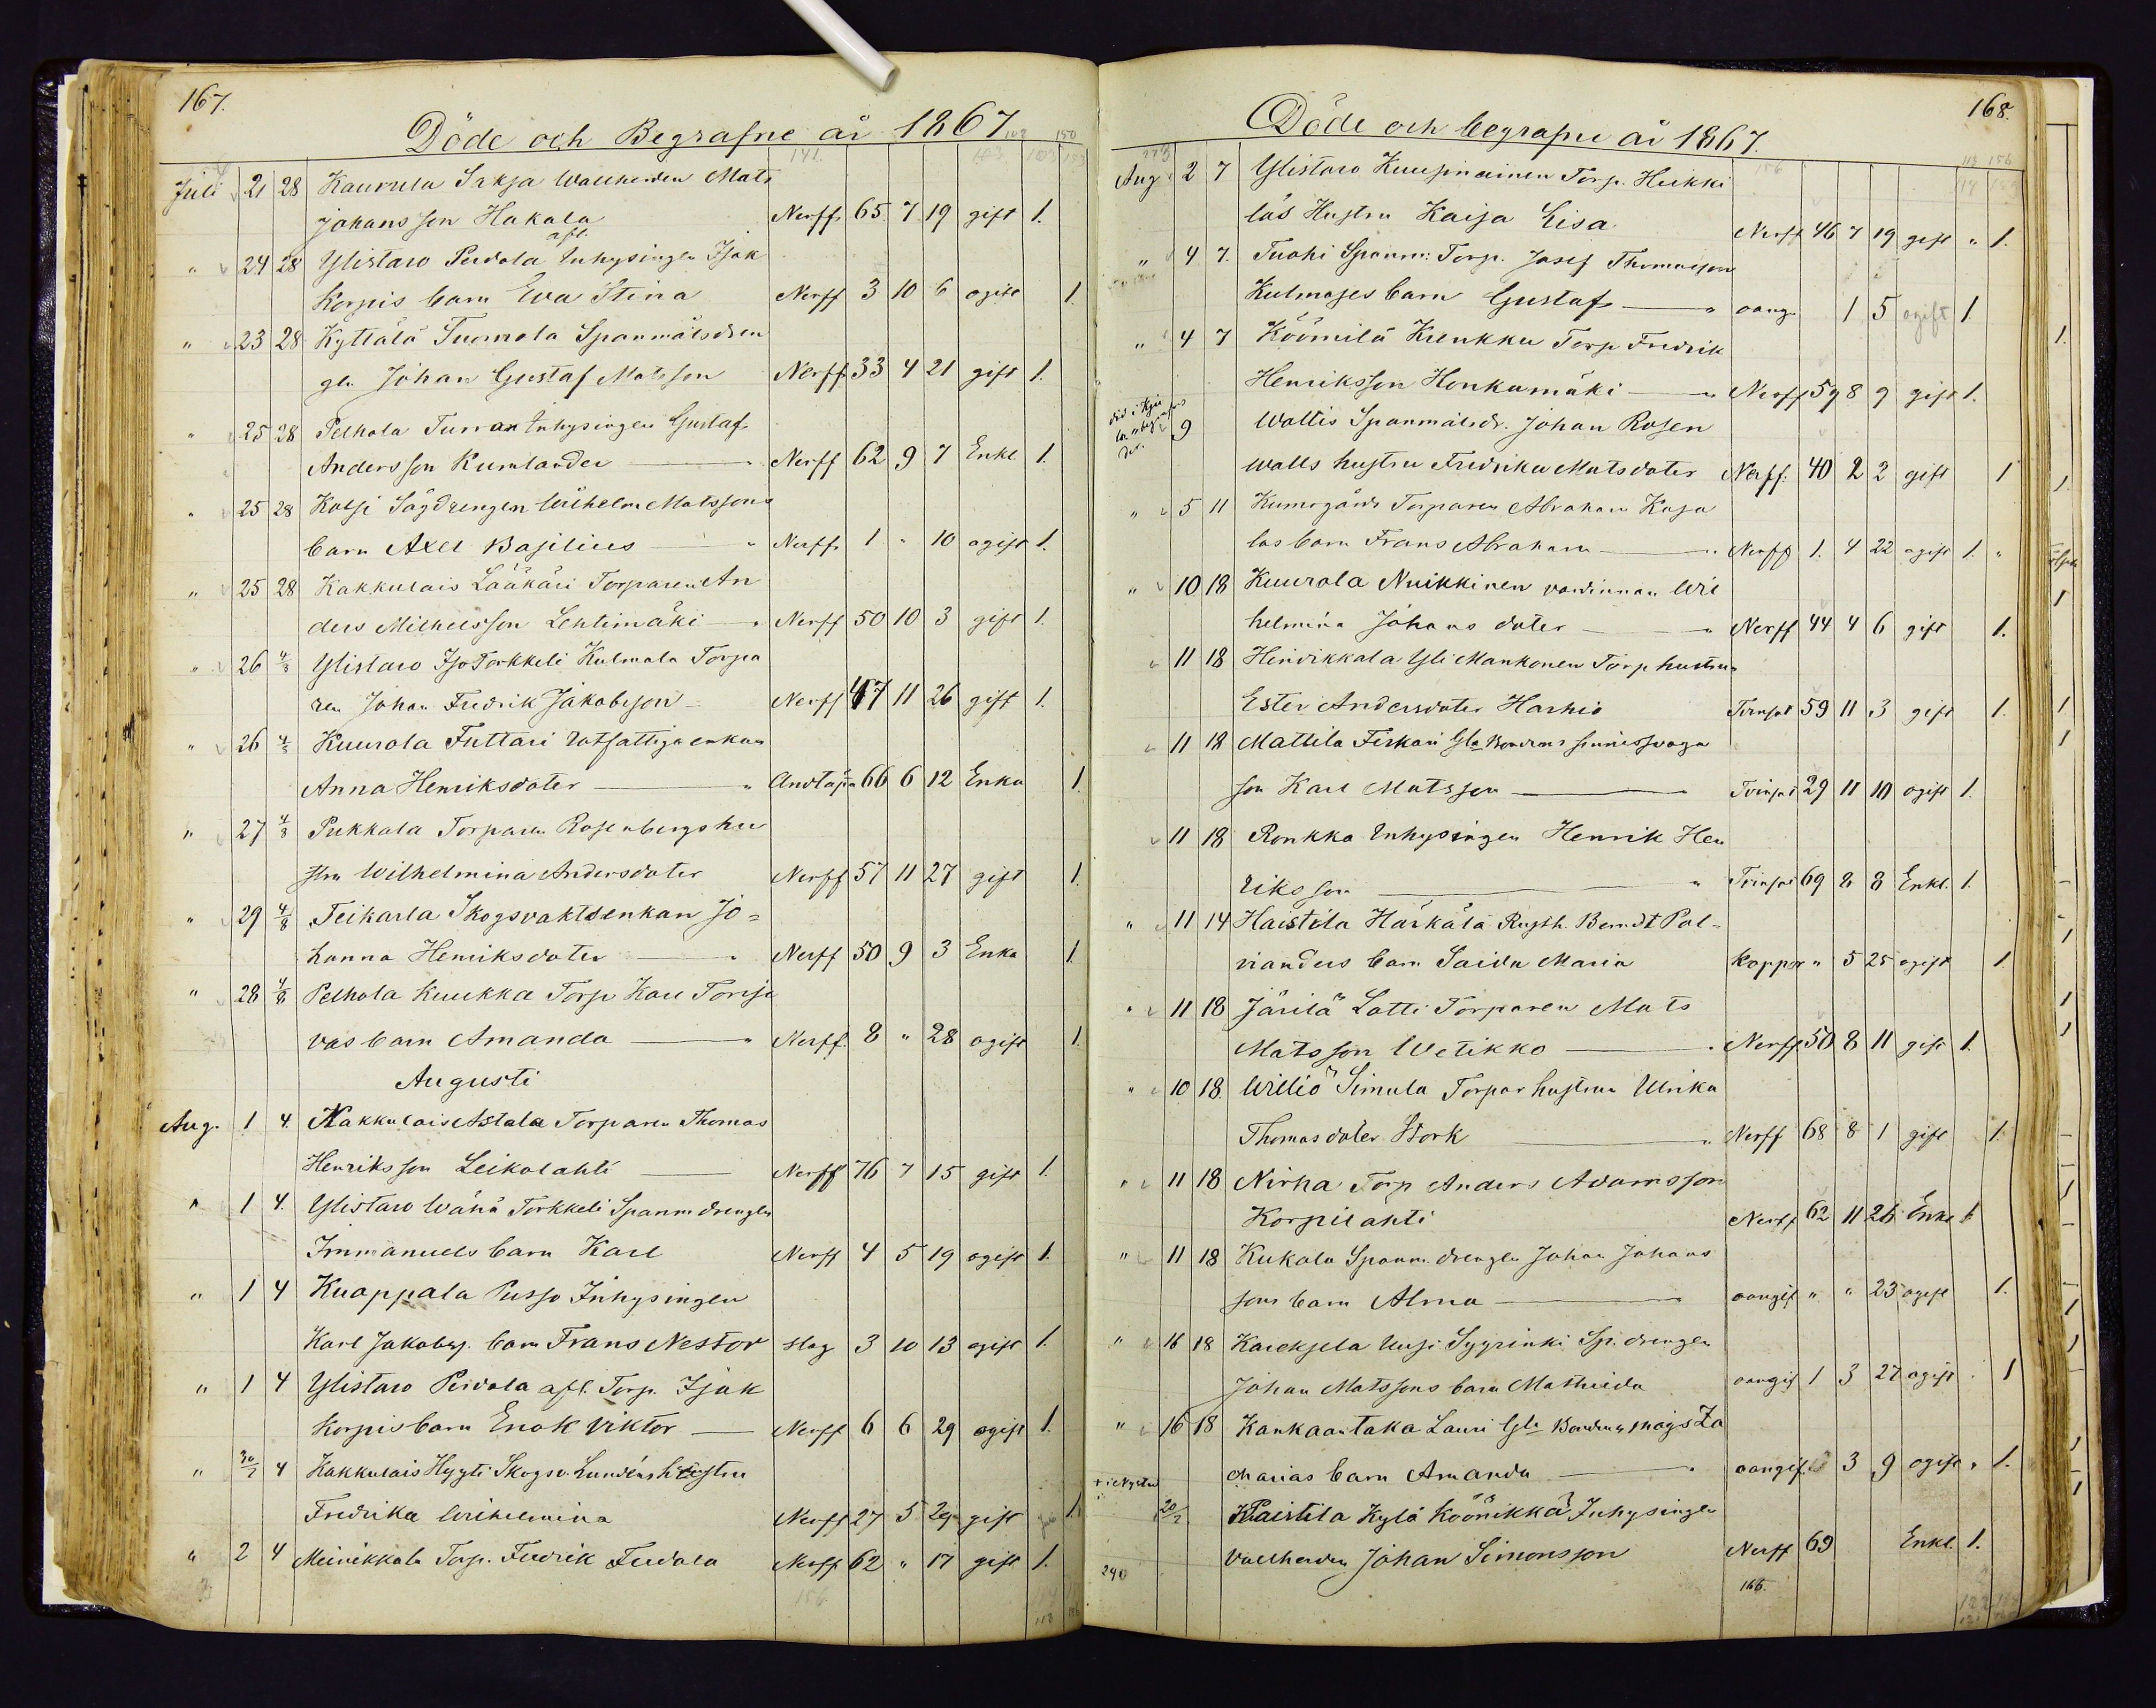 167.
Döde och Begrafne år 1867
Juli 21 28 Kaurula Sakja Wallherden Mats
Johansson Hakala Nerff. 65 7 19 gift 1.
afl.
" 24 28 Ylistaro Perdola Inhysingen Isak
Korpis barn Eva Stina Nerff 3 10 6 ogift 1.
" 23 28 Kyttälä Tuomola Spanmålsdren
gen Johan Gustaf Matsson Nerff 33 4 21 gift 1.
" 25 28 Pelhola Turran Inhysingen Gustaf
Andersson Kumlander Nerff 62 9 7 Enkl 1.
" 25 28 Kolsi Sågdrengen Wilhelm Matssons
barn Axel Basilius " Nerff. 1 " 10 ogift 1.
" 25 28 Kakkulais Lääkäri Torparen An
ders Michelsson Lehtimäki Nerff 50 10 3 gift 1.
" 26 4/8 Ylistaro Iso Torkkeli Kulmala Torpa
ren Johan Fredrik Jakobsson Nerff 47 11 26 gift 1.
" 26 4/8 Kuurola Futtari Rotfattiga enkan
Anna Henriksdoter " Andtäpa 66 6 12 Enka 1
" 27 4/8 Pukkala Torparen Rosenbergs hu
stru Wilhelmina Andersdoter Nerff 57 11 27 gift 1.
" 29 4/8 Teikarla Skogsvaktsenkan Jo=
hanna Henriksdoter Nerff 50 9 3 Enka 1
" 28 4/8 Pelhola Kuukka Torp Karl Torija
vas barn Amanda " Nerff. 8 " 28 ogift 1.
Augusti
Aug. 1 4. Kakkulais Astala Torparen Thomas
Henriksson Leikolahti Nerff 76 7 15 gift 1.
" 1 4. Ylistaro Wähä Torkkeli Spanm drengen
Immanuels barn Karl Nerff 4 5 19 ogift 1.
" 1 4 Kuappala Pusso Inhysingen
Karl Jakobss. barn Frans Nestor slag 3 10 13 ogift 1.
" 1 4 Ylistaro Perdola afl. Torp. Isak
Korpis barn Enok Viktor Nerff 6 6 29 ogift 1.
" 30/7 4 Kakkulais Hyyti Skogsv. Lundéns hustru
Fredrika Wilhelmina Nerff 27 5 29 gift 1.
" 2 4 Meinikkala Torp. Fredrik Fudala Nerff 62 " 17 gift 1.
168.
Döde och begrafne år 1867.
Aug 2 7 Ylistaro Kuusinainen Torp. Heikki
läs Hustru Kaisa Lisa Nerff 46 7 19 gift " 1.
" 4 7. Tuohi Spanm: Torp. Josef Thomasson
Kulmases barn Gustaf " oang. 1 5 ogift 1
" 4 7 Köömilä Krenkku Torp Fredrik
Henriksson Honkamäki " Nerff 59 8 9 gift 1.
9 Wallis Spanmålsdr. Johan Rosen
walls hustru Fredrika Matsdoter Nerff. 40 2 2 gift 1
" 5 11 Kumogårds Torparen Abraham Kaja
las barn Frans Abraham " Nerff 1. 4 22 ogift 1. "
" 10 18 Kuurola Nuikkinen värdinnan Wil
helmina Johansdoter " Nerff 44 4 6 gift 1.
11 18 Hinrikkala Yli Mankonen Torp hustrun
Ester Andersdoter Harhio Tvinsot 59 11 3 gift 1.
11 18 Mattila Firkari Gla Bondens sinnessvaga
son Karl Matsson Tvinsot 29 11 10 ogift 1.
11 18 Ronkka Inhysingen Henrik Hen
riksson " Tvinsot 69 8 8 Enkl. 1.
" 11 14 Haistila Härkälä Rusth. Berndt Pal-
rianders barn Saida Maria Koppor " 5 25 ogift 1.
" 11 18 Järilä Latti Torparen Mats
Matsson Wetikko Nerff 50 8 11 gift 1.
" 10 18. Williö Simula Torparhustrun Ulrika
Thomasdoter Stork Nerff 68 8 1 gift 1.
" 11 18 Nirha Torp Anders Adamsson
Korpilahti Nerff 62 11 26 Enkl 1
" 11 18 Kukola Spanm. drengen Johan Johans
sons barn Alma oangif " " 23 ogift 1.
" 16 18 Kareksela Uusi Syyrinki Sp. drengen
Johan Matssons barn Mathilda oangif 1 3 27 ogift 1
" 16 18 Kankaantaka Lauri Gla Bondens mågs Za
charias barn Amanda oangif. 3 9 ogift " 1.
20/7 Haistila Kylä Köönikkä Inhysingen
vallherden Johan Simonsson Nerff 69 Enkl. 1.
240
166.